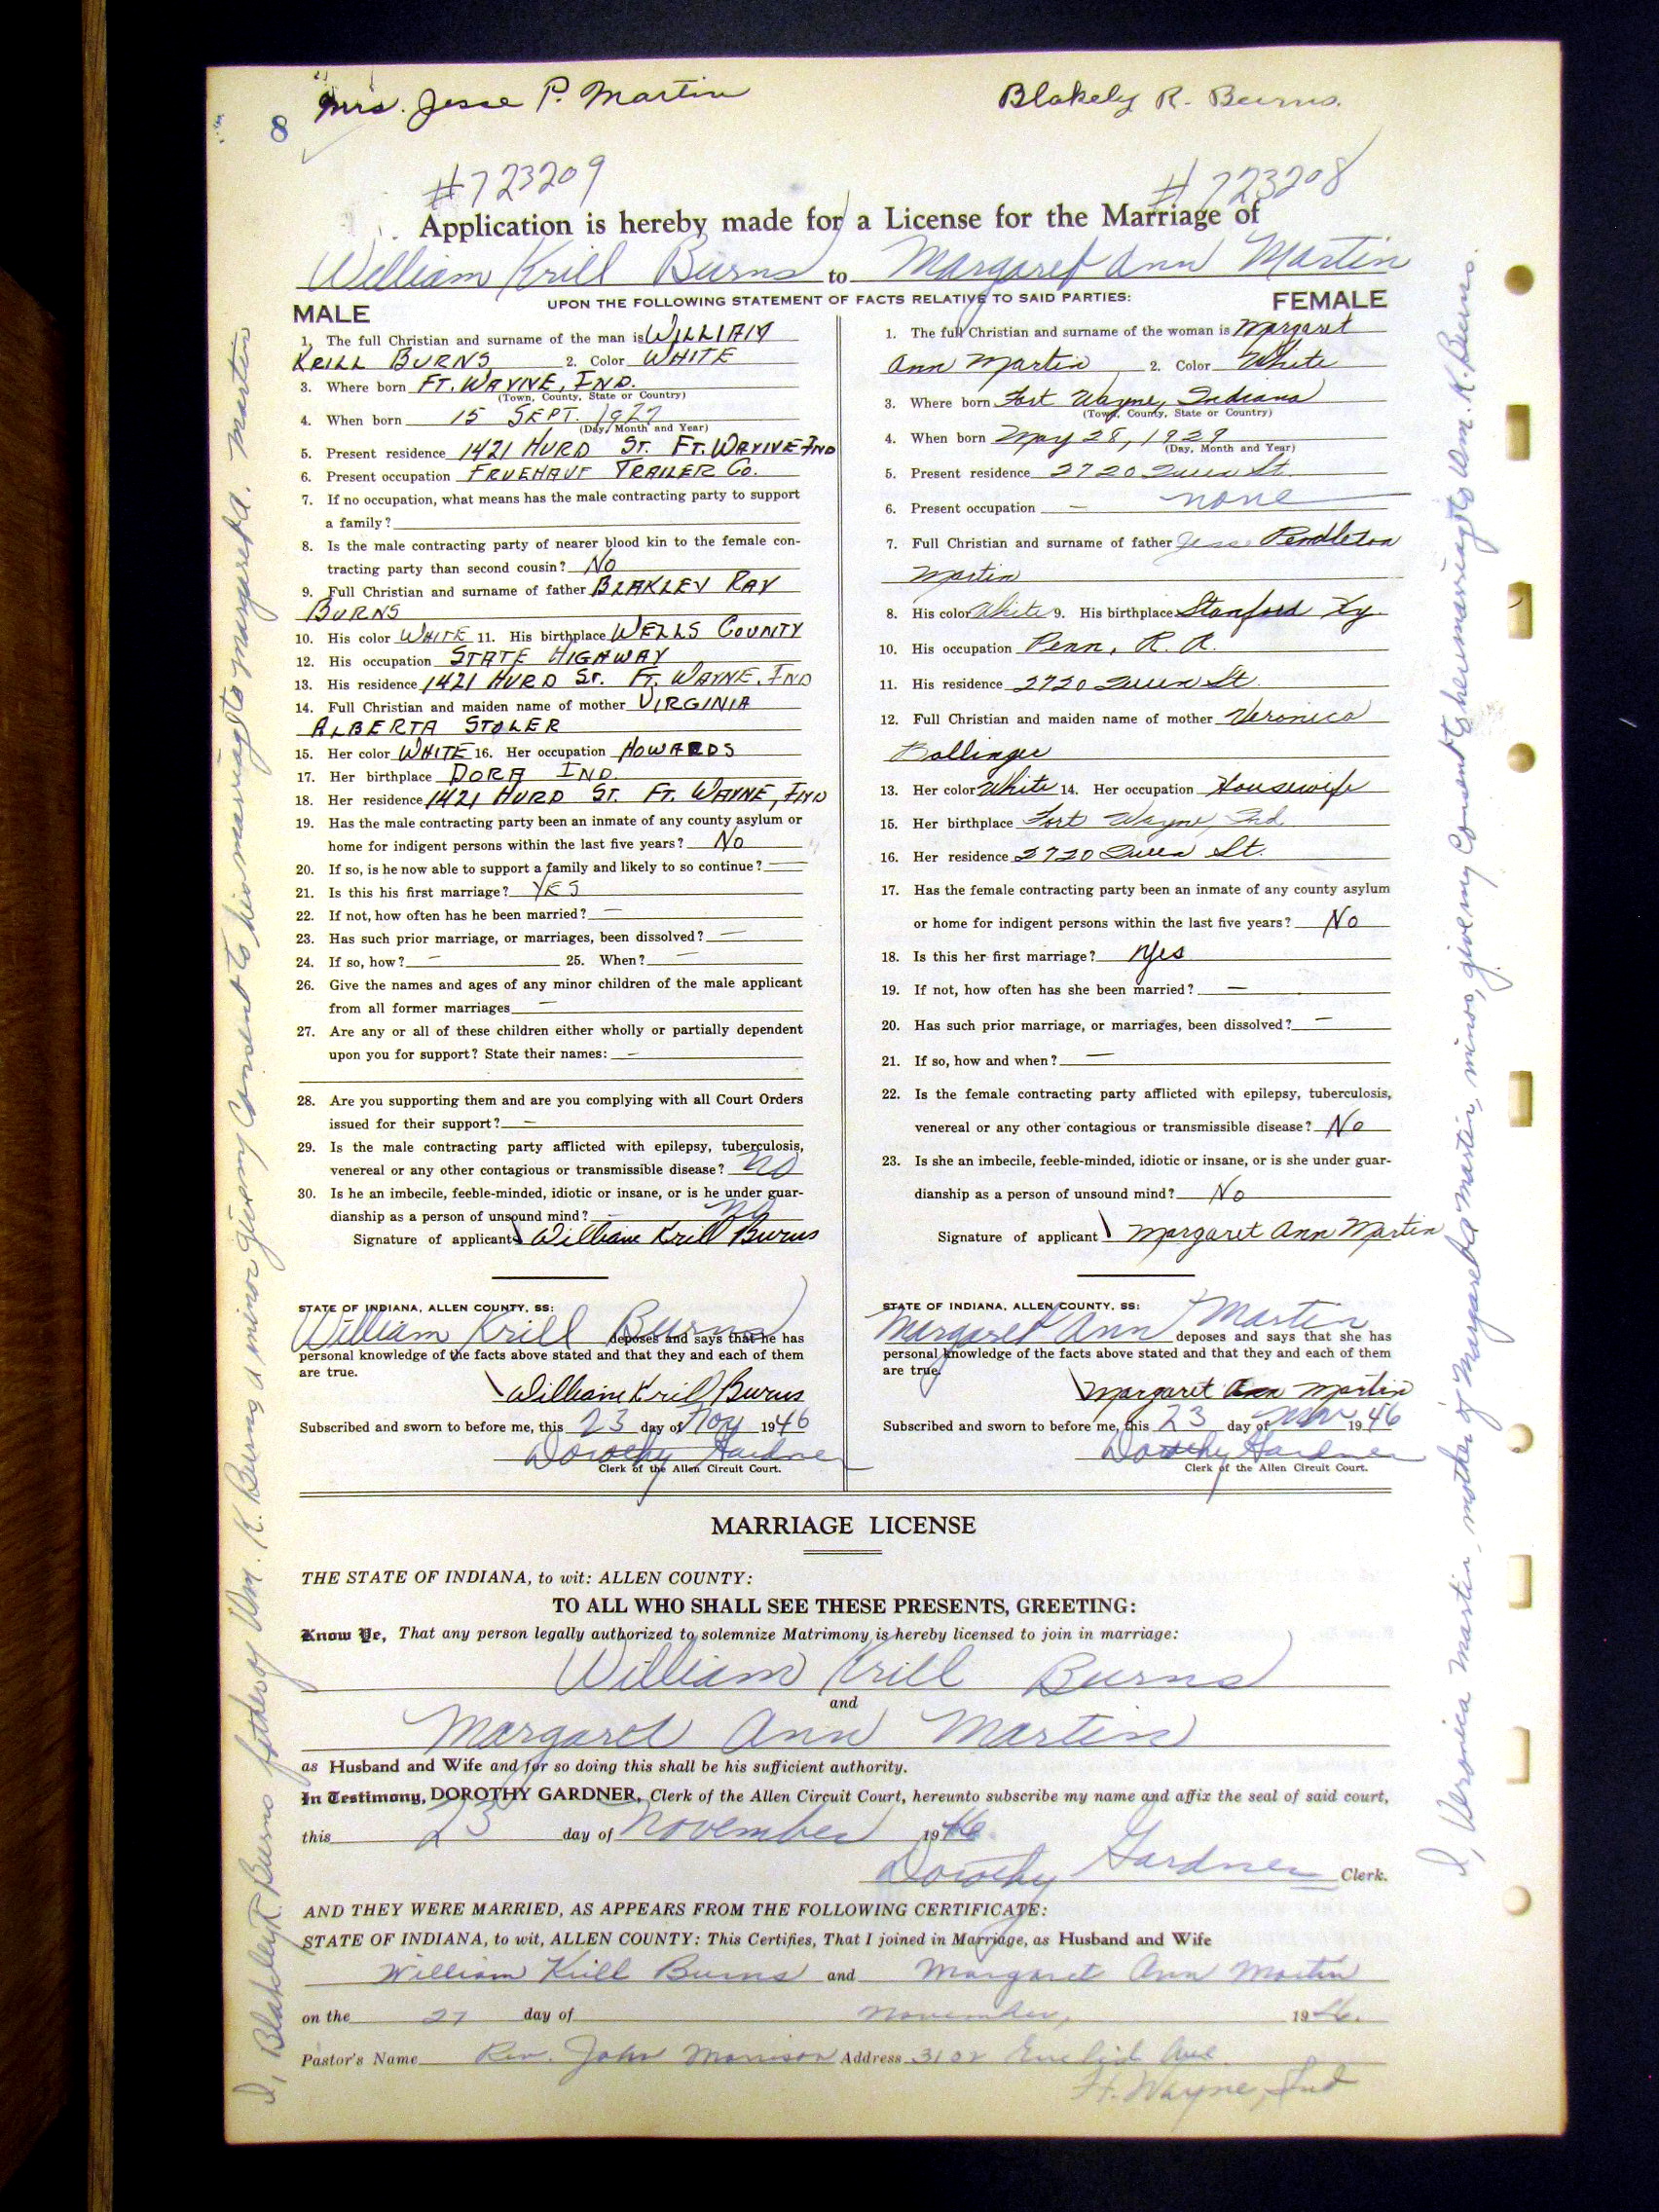 Mrs. Jesse P. Martin
Blakely R. Burns.
8
#723209
#723208
Application is hereby made for a License for the Marriage of
William Krill Burns to Margaret Ann Martin
UPON THE FOLLOWING STATEMENT OF FACTS RELATIVE TO SAID PARTIES:
MALE
1. The full Christian and surname of the man is WILLIAM
KRILL BURNS 2. Color WHITE
3. Where born FT. WAYNE, IND.
(Town, County, State or Country)
4. When born 15 SEPT. 1927
(Day, Month and Year)
5. Present residence 1421 HURD ST. FT. WAYNE IND
6. Present occupation FRUEHAUF TRAILER CO.
7. If no occupation, what means has the male contracting party to support
a family?
8. Is the male contracting party of nearer blood kin to the female con-
tracting party than second cousin? NO
9. Full Christian and surname of father BLAKLEY RAY
BURNS
10. His color WHITE 11. His birthplace WELLS COUNTY
12. His occupation STATE HIGHWAY
13. His residence 1421 HURD ST. FT. WAYNE, IND
14. Full Christian and maiden name of mother VIRGINIA
ALBERTA STOLER
15. Her color WHITE 16. Her occupation HOWARDS
17. Her birthplace DORA IND.
18. Her residence 1421 HURD ST. FT. WAYNE, IND
19. Has the male contracting party been an inmate of any county asylum or
home for indigent persons within the last five years? No
20. If so, is he now able to support a family and likely to so continue? —
21. Is this his first marriage? YES
22. If not, how often has he been married? —
23. Has such prior marriage, or marriages, been dissolved? —
24. If so, how? — 25. When? —
26. Give the names and ages of any minor children of the male applicant
from all former marriages —
27. Are any or all of these children either wholly or partially dependent
upon you for support? State their names: —
28. Are you supporting them and are you complying with all Court Orders
issued for their support? —
29. Is the male contracting party afflicted with epilepsy, tuberculosis,
venereal or any other contagious or transmissible disease? no
30. Is he an imbecile, feeble-minded, idiotic or insane, or is he under guar-
dianship as a person of unsound mind? no
Signature of applicant William Krill Burns
STATE OF INDIANA, ALLEN COUNTY, SS:
William Krill Burns deposes and says that he has
personal knowledge of the facts above stated and that they and each of them
are true.
William Krill Burns
Subscribed and sworn to before me, this 23 day of Nov 1946
Dorothy Gardner
Clerk of the Allen Circuit Court.
FEMALE
1. The full Christian and surname of the woman is Margaret
Ann Martin 2. Color White
3. Where born Fort Wayne, Indiana
(Town, County, State or Country)
4. When born May 28, 1929
(Day, Month and Year)
5. Present residence 2720 Queen St.
6. Present occupation — none
7. Full Christian and surname of father Jesse Pendleton
Martin
8. His color White 9. His birthplace Stanford Ky.
10. His occupation Penn. R. R.
11. His residence 2720 Queen St.
12. Full Christian and maiden name of mother Veronica
Bollinger
13. Her color White 14. Her occupation Housewife
15. Her birthplace Fort Wayne, Ind.
16. Her residence 2720 Queen St.
17. Has the female contracting party been an inmate of any county asylum
or home for indigent persons within the last five years? No
18. Is this her first marriage? Yes
19. If not, how often has she been married? —
20. Has such prior marriage, or marriages, been dissolved? —
21. If so, how and when? —
22. Is the female contracting party afflicted with epilepsy, tuberculosis,
venereal or any other contagious or transmissible disease? No
23. Is she an imbecile, feeble-minded, idiotic or insane, or is she under guar-
dianship as a person of unsound mind? No
Signature of applicant Margaret Ann Martin
STATE OF INDIANA, ALLEN COUNTY, SS:
Margaret Ann Martin deposes and says that she has
personal knowledge of the facts above stated and that they and each of them
are true.
Margaret Ann Martin
Subscribed and sworn to before me, this 23 day of Nov 1946
Dorothy Gardner
Clerk of the Allen Circuit Court.
MARRIAGE LICENSE
THE STATE OF INDIANA, to wit: ALLEN COUNTY:
TO ALL WHO SHALL SEE THESE PRESENTS, GREETING:
Know Ye, That any person legally authorized to solemnize Matrimony is hereby licensed to join in marriage:
William Krill Burns
and
Margaret Ann Martin
as Husband and Wife and for so doing this shall be his sufficient authority.
In Testimony, DOROTHY GARDNER, Clerk of the Allen Circuit Court, hereunto subscribe my name and affix the seal of said court,
this 23 day of November 1946
Dorothy Gardner Clerk.
AND THEY WERE MARRIED, AS APPEARS FROM THE FOLLOWING CERTIFICATE:
STATE OF INDIANA, to wit, ALLEN COUNTY: This Certifies, That I joined in Marriage, as Husband and Wife
William Krill Burns and Margaret Ann Martin
on the 27 day of November, 1946.
Pastor's Name Rev. John Morrison Address 3102 Euclid Ave.
Ft. Wayne, Ind
I, Blakley R. Burns father of Wm. K. Burns a minor give my Consent to his marriage to Margaret A. Martin
I, Veronica Martin, mother of Margaret A Martin, minor, give my Consent to her marriage to Wm. K. Burns.